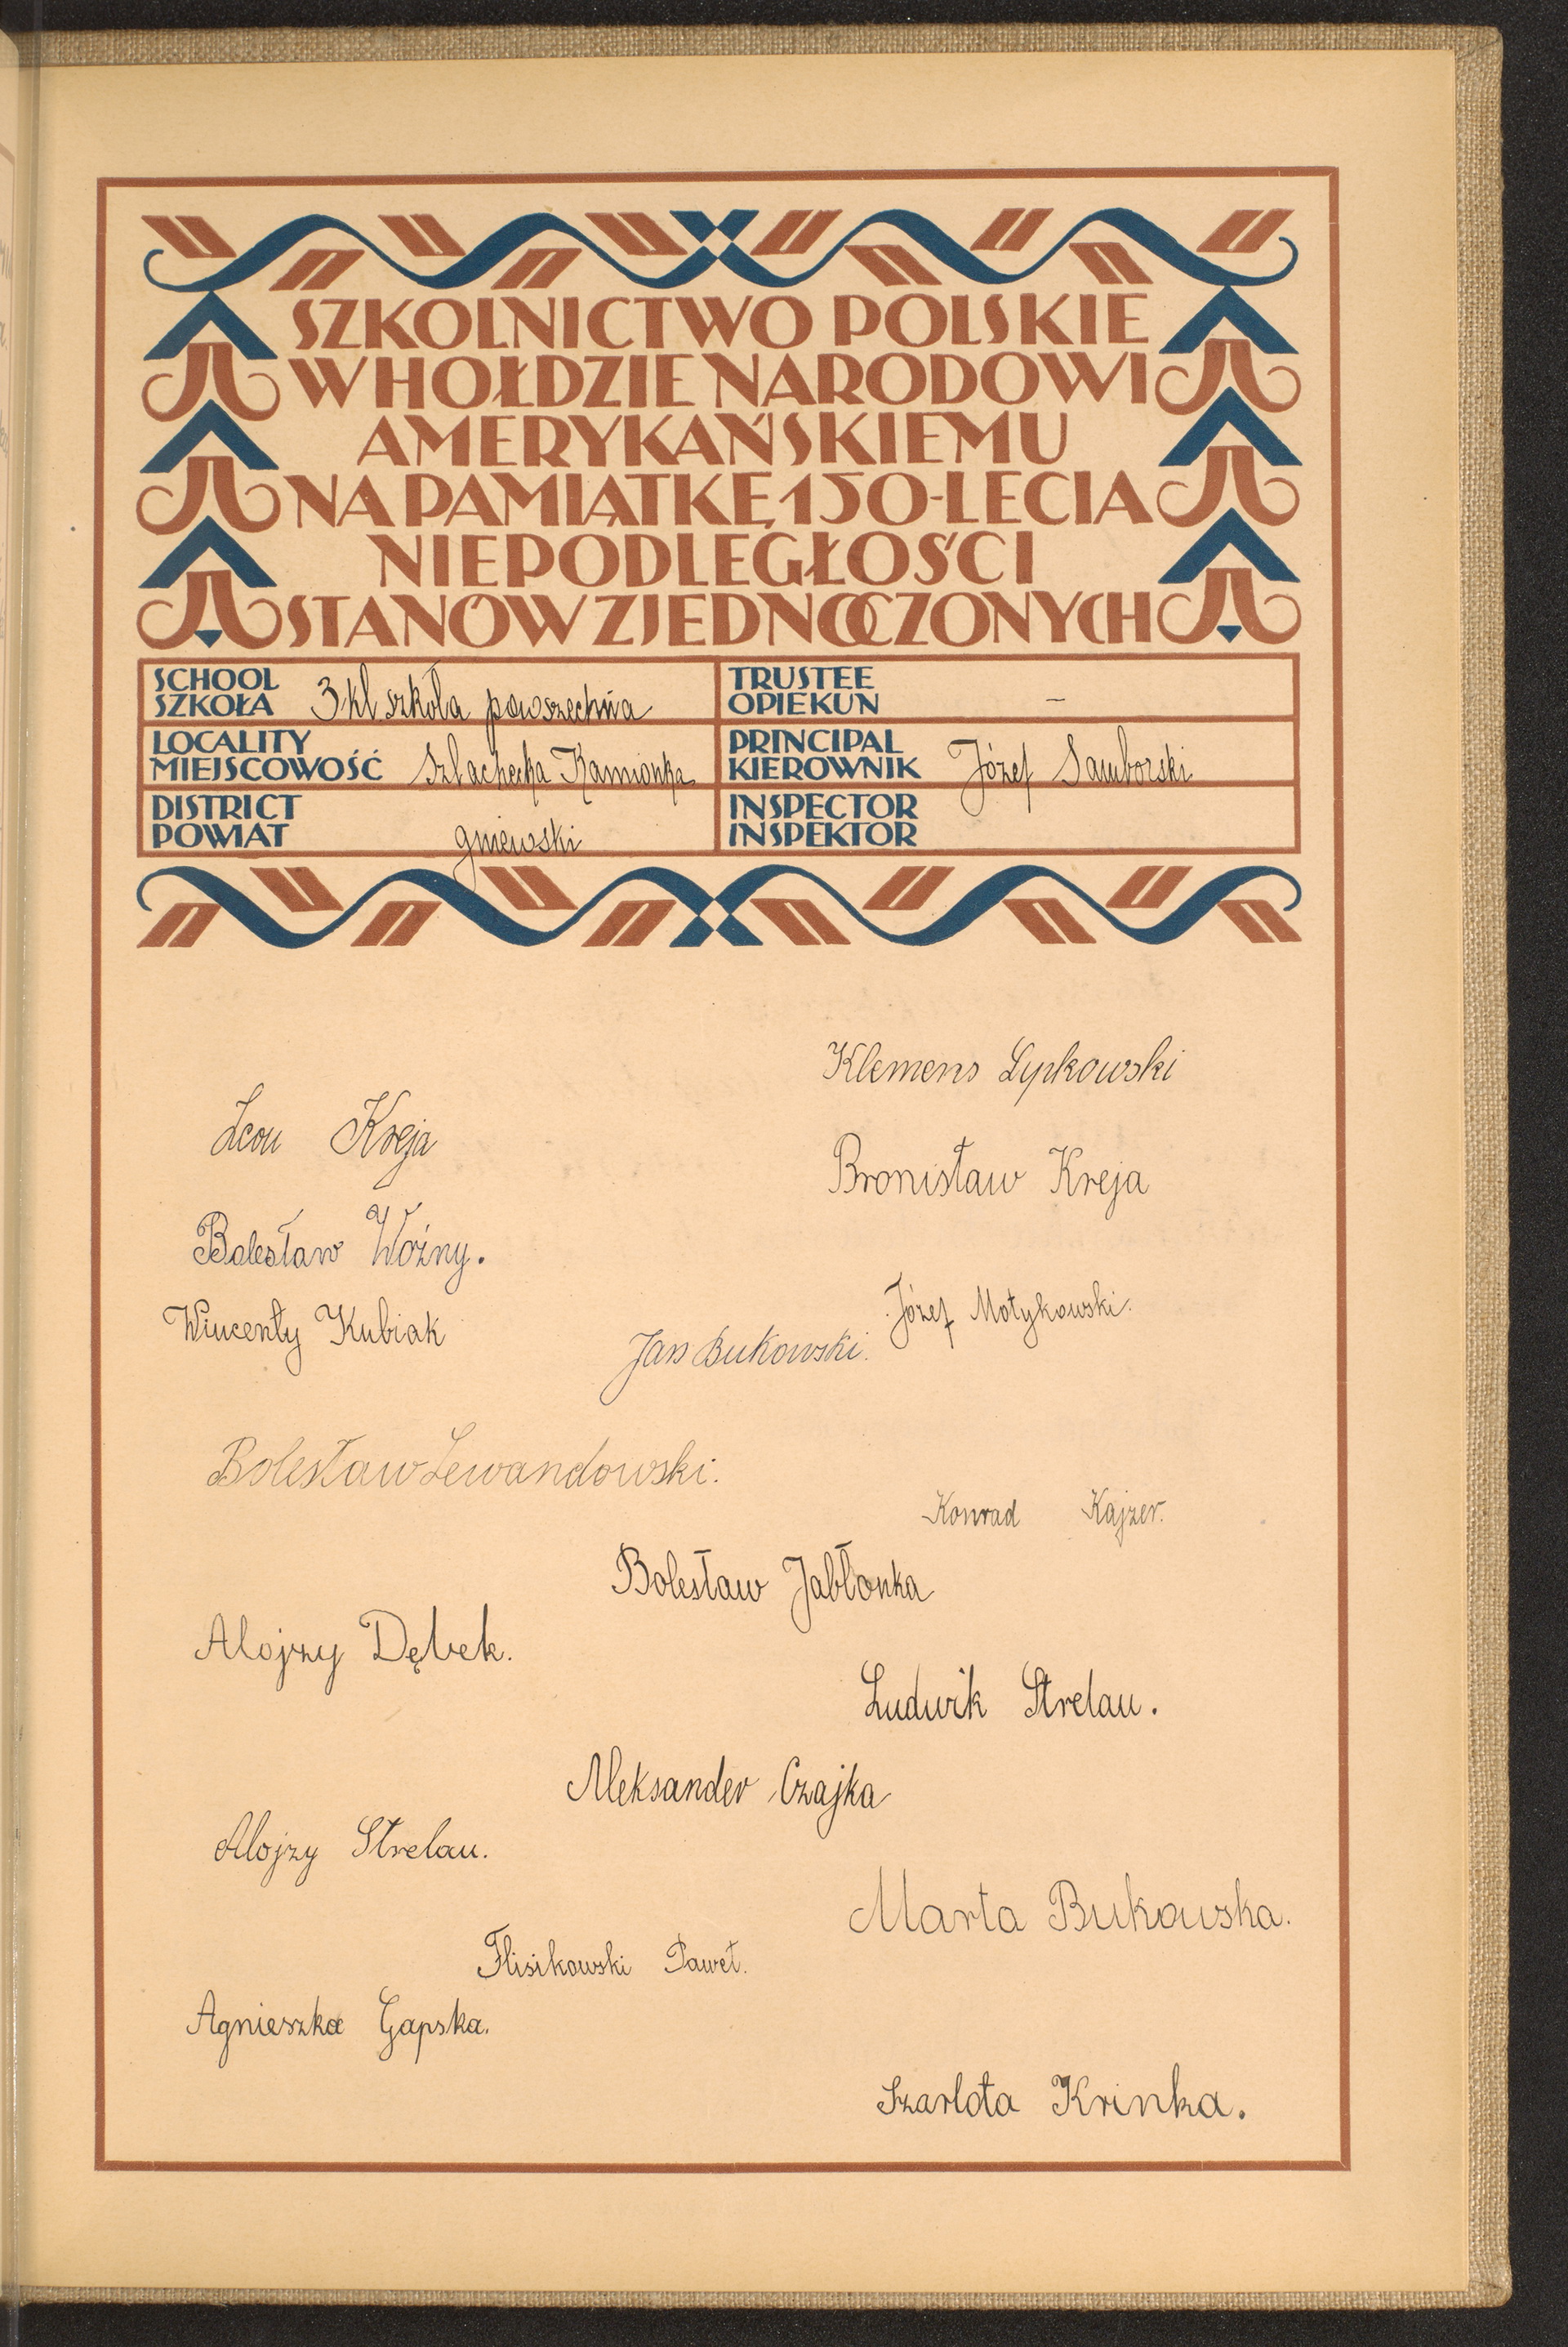 SZKOLNICTWO POLSKIE
W HOŁDZIE NARODOWI
AMERYKAŃSKIEMU
NA PAMIĄTKĘ 150-LECIA
NIEPODLEGŁOŚCI
STANÓW ZJEDNOCZONYCH
SCHOOL
SZKOŁA 3 kl szkoła powszechna
TRUSTEE
OPIEKUN –
LOCALITY
MIEJSCOWOŚĆ Szlachecka Kamionka
PRINCIPAL
KIEROWNIK Józef Samborski
DISTRICT
POWIAT gniewski
INSPECTOR
INSPEKTOR
Klemens Lypkowski
Leon Kreja
Bronisław Kreja
Bolesław Woźny.
Józef Motykowski.
Wincenty Kubiak
Jan Bukowski.
Bolesław Lewandowski.
Konrad Kajzer.
Bolesław Jabłonka
Alojzy Dębek.
Ludwik Strelau.
Aleksander Czajka
Alojzy Strelau.
Marta Bukowska.
Flisikowski Paweł.
Agnieszka Gapska.
Szarlota Krinka.